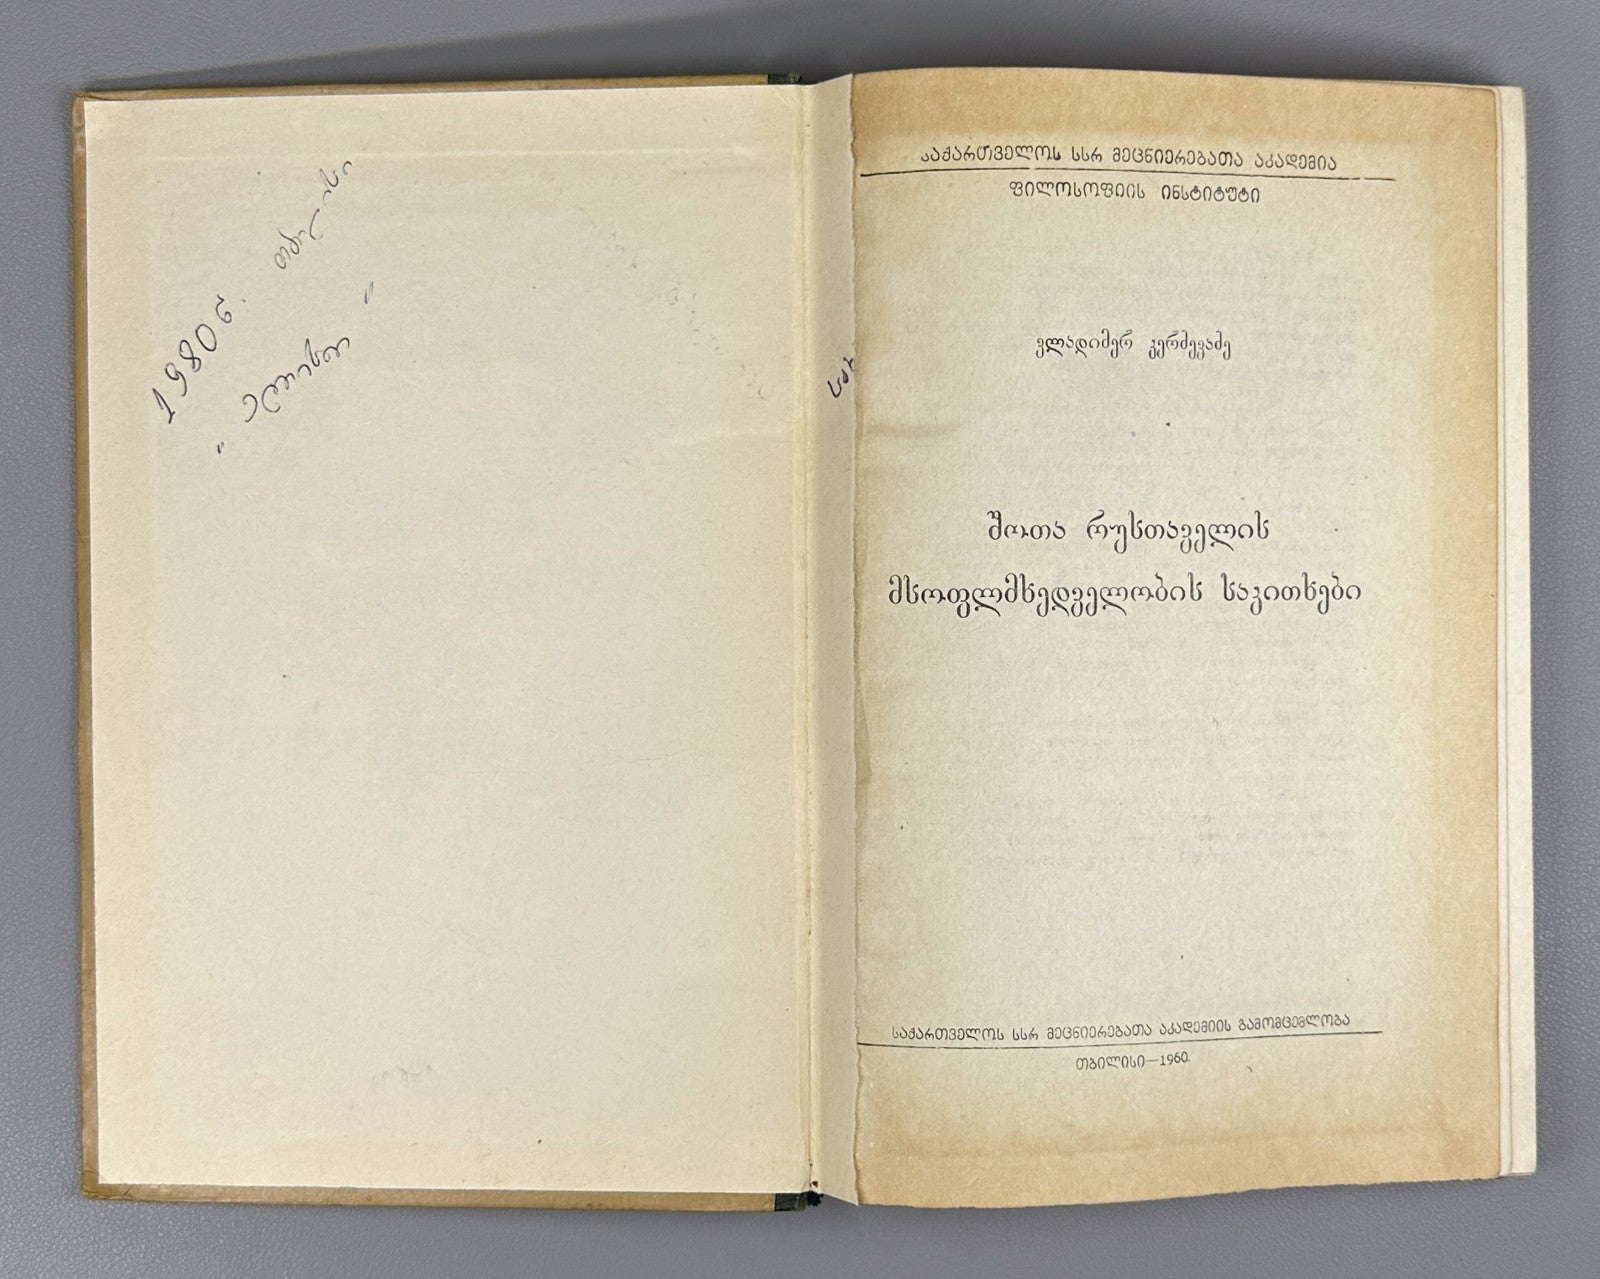 1980 წ. თბილისი
საქართველოს სსრ მეცნიერებათა აკადემია
ფილოსოფიის ინსტიტუტი
ვლადიმერ კერძევაძე
შოთა რუსთაველის
მსოფლმხედველობის საკითხები
საქართველოს სსრ მეცნიერებათა აკადემიის გამომცემლობა
თბილისი—1960.